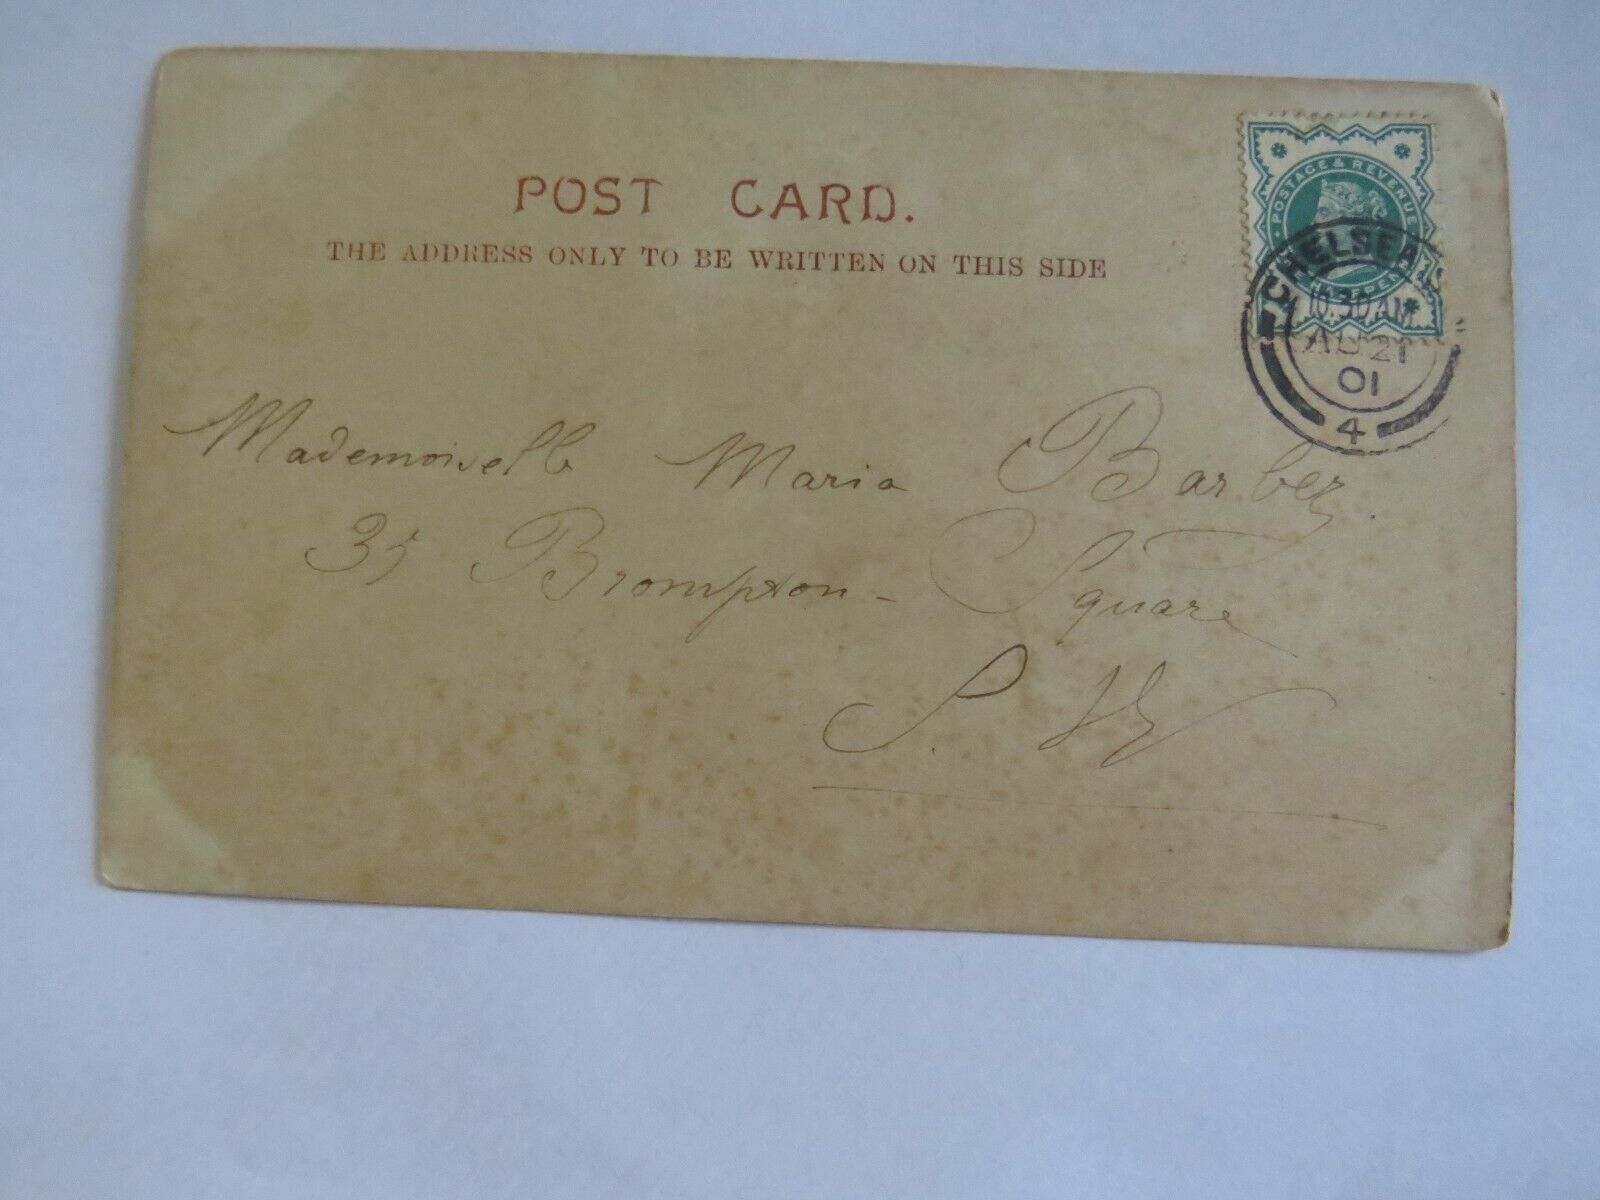 POST CARD.
THE ADDRESS ONLY TO BE WRITTEN ON THIS SIDE
POSTAGE & REVENUE
CHELSEA
10.30 AM
AU 21
01
4
Mademoiselle Maria Barbey
35 Brompton - Square
S. W